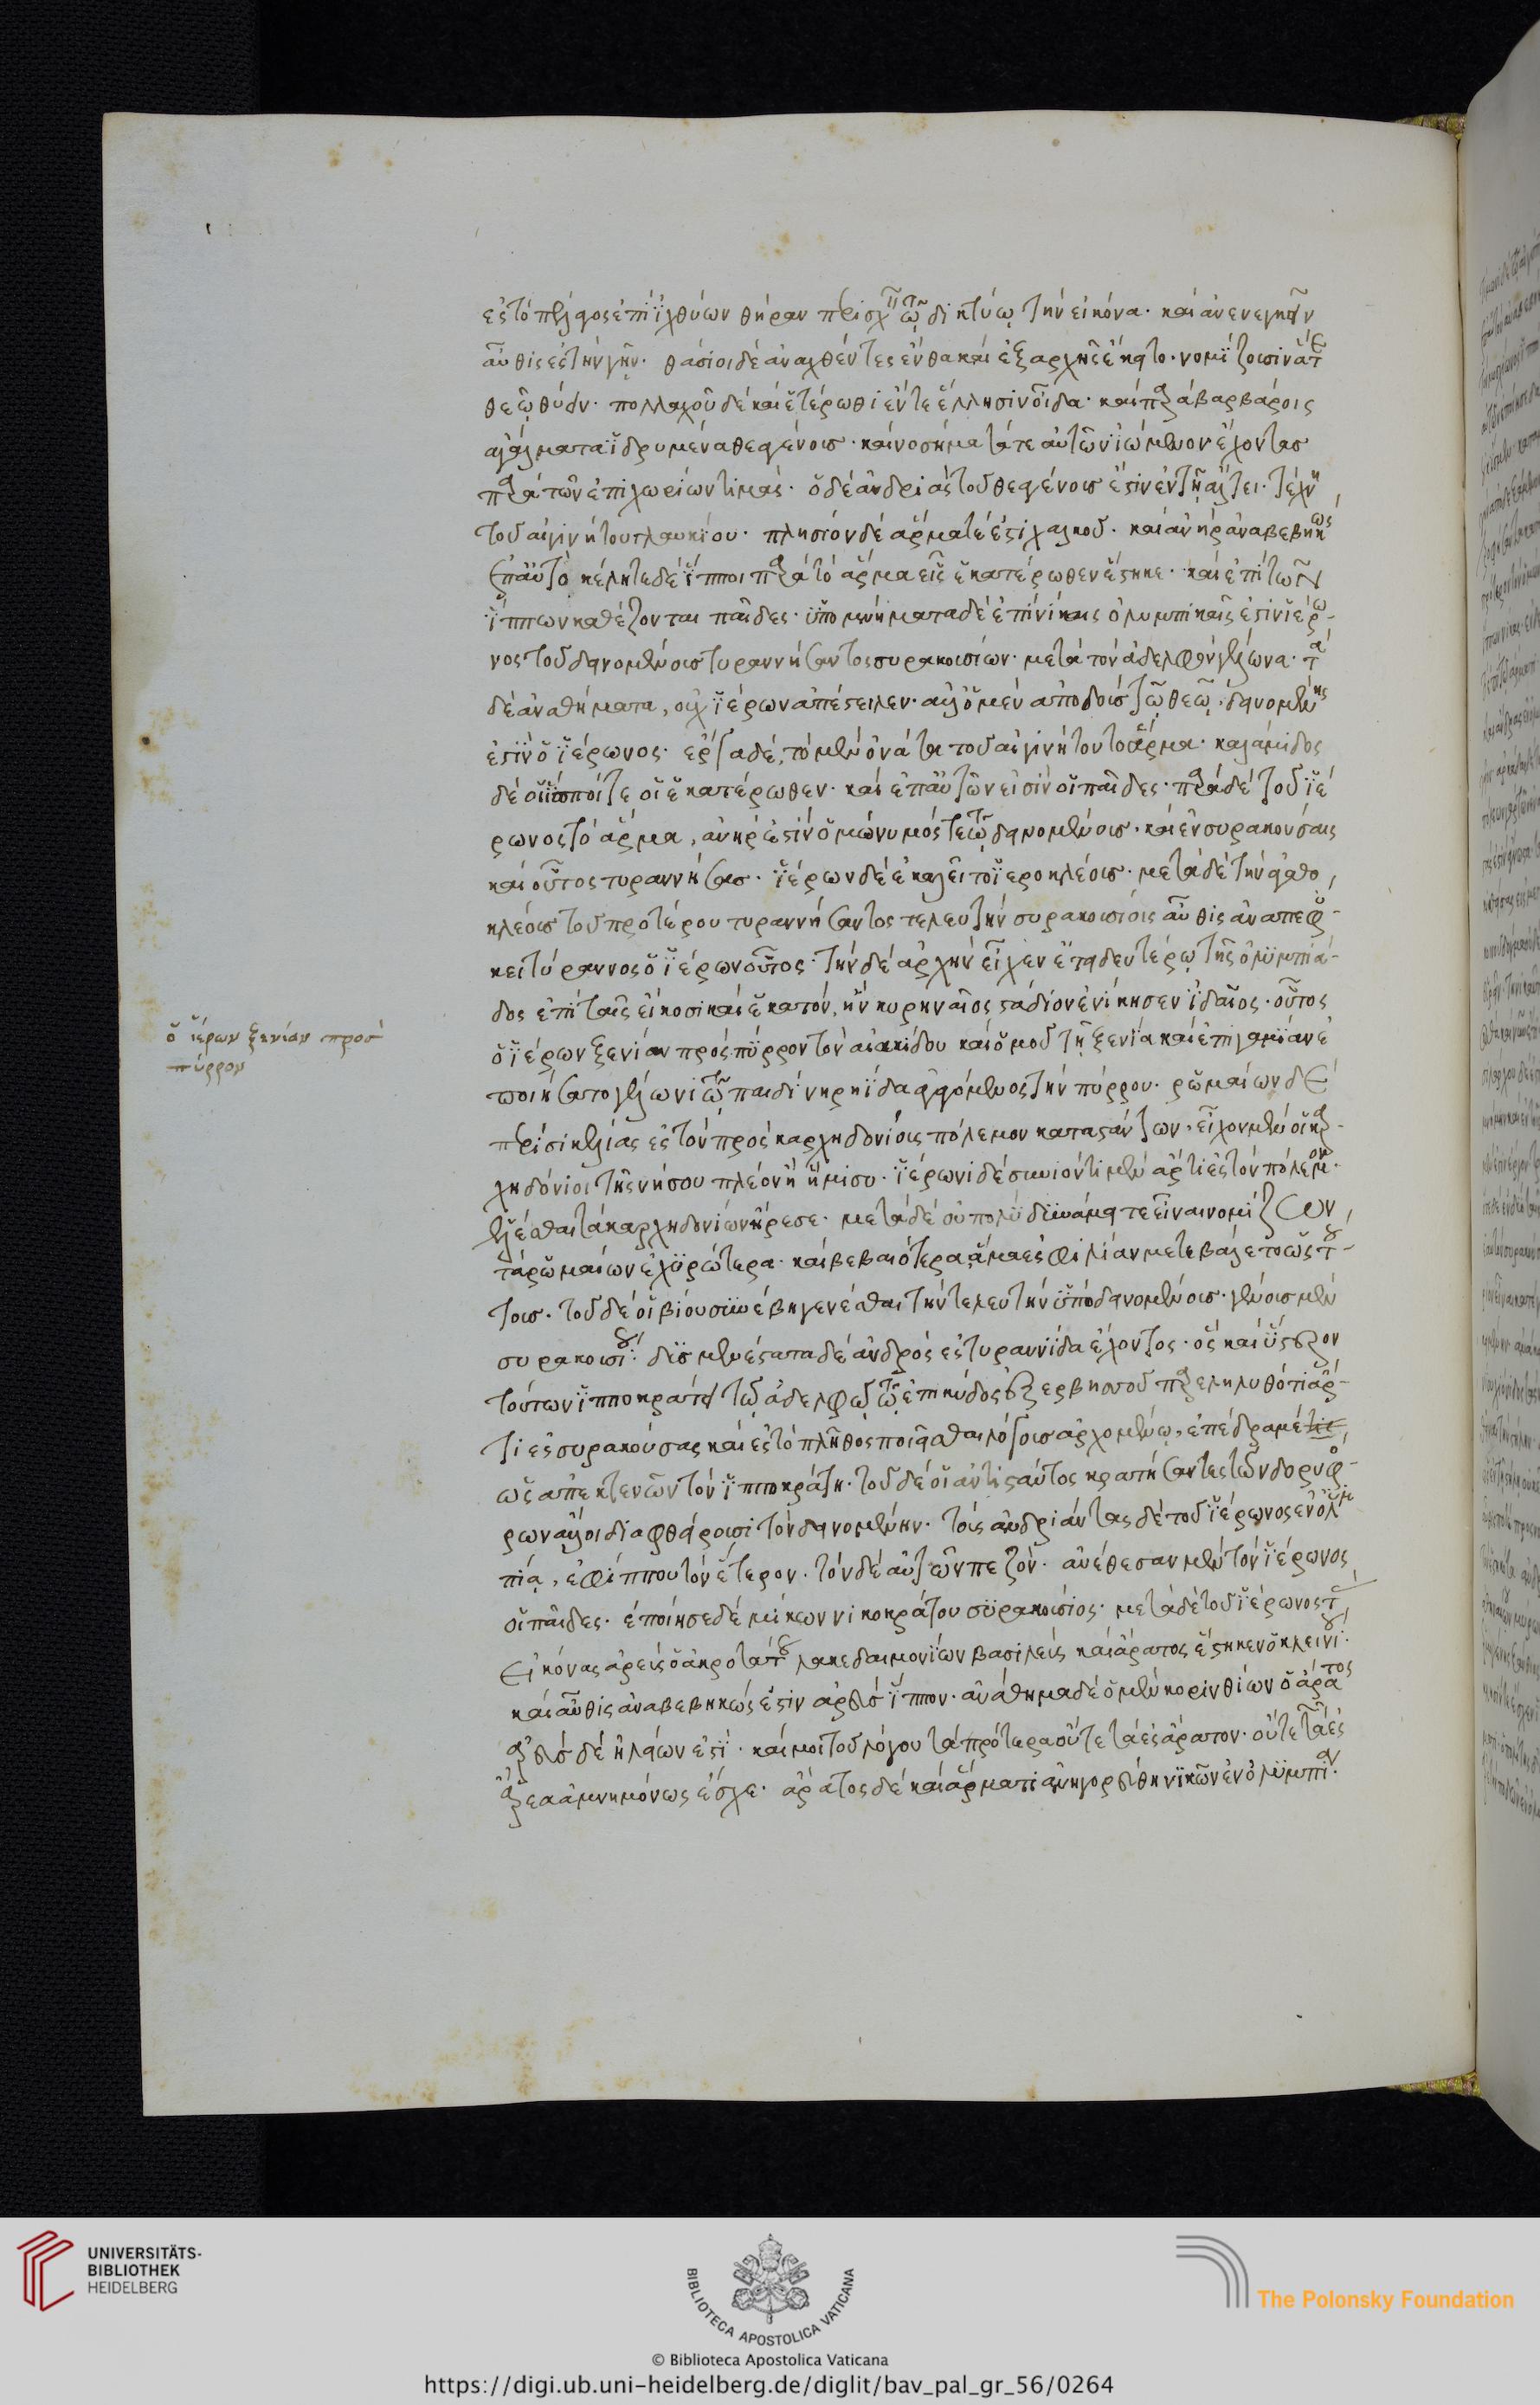 ἐς τὸ πέλαγος ἐπὶ ἰχθύων θήραν περιέσχον τῷ δικτύῳ τὴν εἰκόνα· καὶ ἀνενεγκεῖν
αὖθις ἐς τὴν γῆν· θάσιοι δὲ ἀναθέντες ἔνθα καὶ ἐξ ἀρχῆς ἔκειτο· νομίζουσιν ἅτε
θεῷ θύειν· πολλαχοῦ δὲ καὶ ἑτέρωθι ἔν τε ἕλλησιν οἶδα· καὶ παρὰ βαρβάροις
ἀγάλματα ἱδρυμένα θεαγένους· καὶ νοσήματά τε αὐτὸν ἰώμενον ἔχοντας
παρὰ τῶν ἐπιχωρίων τιμάς· ὁ δὲ ἀνδριὰς τοῦ θεαγένους ἐστὶν ἐν τῇ ἄλτει· τέχνη
τοῦ αἰγινήτου γλαυκίου· πλησίον δὲ ἅρμά τέ ἐστι χαλκοῦ· καὶ ἀνὴρ ἀναβεβηκὼς
ἐπ' αὐτὸ κέλητε δὲ ἵπποι παρὰ τὸ ἅρμα εἷς ἑκατέρωθεν ἕστηκε· καὶ ἐπὶ τῶν
ἵππων καθέζονται παῖδες· ὑπομνήματα δὲ ἐπὶ νίκαις ὀλυμπικαῖς ἐστὶν ἱέρω-
νος τοῦ δεινομένους τυραννήσαντος συρακουσίων· μετὰ τὸν ἀδελφὸν γέλωνα· τὰ
δὲ ἀναθήματα, οὐχ ἱέρων ἀπέστειλεν· ἀλλ' ὁ μὲν ἀποδοὺς τῷ θεῷ, δεινομένης
ἐστὶν ὁ ἱέρωνος· ἔργα δέ, τὸ μὲν ὀνάτα τοῦ αἰγινήτου τὸ ἅρμα· καλάμιδος
δὲ οἱ ἵπποί τε οἱ ἑκατέρωθεν· καὶ ἐπ' αὐτῶν εἰσὶν οἱ παῖδες· παρὰ δὲ τοῦ ἱέ
ρωνος τὸ ἅρμα, ἀνήρ ἐστιν ὁμώνυμός τε τῷ δεινομένους· καὶ ἐν συρακούσαις
καὶ οὗτος τυραννήσας· ἱέρων δὲ ἐκαλεῖτο ἱεροκλέους· μετὰ δὲ τὴν ἀγαθο
κλέους τοῦ προτέρου τυραννήσαντος τελευτὴν συρακουσίοις αὖθις ἀναπεφύ-
κει τύραννος ὁ ἱέρων οὗτος· τὴν δὲ ἀρχὴν εἶχεν ἔτα δευτέρῳ τῆς ὀλυμπιά-
δος ἐπὶ ταῖς εἴκοσι καὶ ἑκατόν, ἣν κυρηναῖος στάδιον ἐνίκησεν ἰδαῖος· οὗτος
ὁ ἱέρων ξενίαν πρὸς πύρρον τὸν αἰακίδου καὶ ὁμοῦ τῇ ξενία καὶ ἐπιγαμίαν ἐ
ποιήσατο γέλωνι τῷ παιδὶ νηρηίδα ἀγόμενος τὴν πύρρου· ῥωμαίων δὲ
περὶ σικελίας ἐς τὸν πρὸς καρχηδονίους πόλεμον καταστάντων, εἶχον μὲν οἱ καρ-
χηδόνιοι τῆς νήσου πλέον ἢ ἥμισυ· ἱέρωνι δὲ συνιόντι μὲν ἄρτι ἐς τὸν πόλεμον·
ἑλέσθαι τὰ καρχηδονίων ἤρεσε· μετὰ δὲ οὐ πολὺ δυνάμει τε εἶναι νομίζων
τὰ ῥωμαίων ἐχυρώτερα· καὶ βεβαιότερα, ἅμα ἐς φιλίαν μετεβάλετο ὡς τού-
τους· τοῦ δέ οἱ βίου συνέβη γενέσθαι τὴν τελευτὴν ὑπὸ δεινομένους· γένους μὲν
συρακουσίου· δυσμενέστατα δὲ ἀνδρὸς ἐς τυραννίδα ἔχοντος· ὃς καὶ ὕστερον
τούτων ἱπποκράτει τῷ ἀδελφῷ τῷ ἐπικύδος ἐξ ἐρβησοῦ παρεληλυθότι ἄρ-
τι ἐς συρακούσας καὶ ἐς τὸ πλῆθος ποιεῖσθαι λόγους ἀρχομένῳ, ἐπέδραμέ τις
ὡς ἀπεκτενῶν τὸν ἱπποκράτη· τοῦ δέ οἱ ἀντιστάντος κρατήσαντες τῶν δορυφό-
ρων ἄλλοι διαφθείρουσι τὸν δεινομένην· τοὺς ἀνδριάντας δὲ τοῦ ἱέρωνος ἐν ὀλυμ
πίᾳ, ἐφίππου τὸν ἕτερον· τὸν δὲ αὐτῶν πεζόν· ἀνέθεσαν μὲν τὸν ἱέρωνος
οἱ παῖδες· ἐποίησε δὲ μίκων νικοκράτου συρακούσιος· μετὰ δὲ τοῦ ἱέρωνος τὰς
εἰκόνας ἀρεὺς ὁ ἀκροτάτου λακεδαιμονίων βασιλεὺς καὶ ἄρατος ἕστηκεν ὁ κλεινίου·
καὶ αὖθις ἀναβεβηκώς ἐστιν ἀρεὺς ἵππον· ἀνάθημα δὲ ὁ μὲν κορινθίων ὁ ἄρατος
ἀρεὺς δὲ ἠλείων ἐστί· καί μοι τοῦ λόγου τὰ πρότερα οὔτε τὰ ἐς ἄρατον· οὔτε τὰ ἐς
ἀρέα ἀμνημόνως ἔσχε· ἄρατος δὲ καὶ ἅρματι ἀνηγορεύθη νικῶν ἐν ὀλυμπίᾳ·
ὁ ἱέρων ξενίαν πρὸς
πύρρον
UNIVERSITÄTS-
BIBLIOTHEK
HEIDELBERG
BIBLIOTECA APOSTOLICA VATICANA
The Polonsky Foundation
© Biblioteca Apostolica Vaticana
https://digi.ub.uni-heidelberg.de/diglit/bav_pal_gr_56/0264